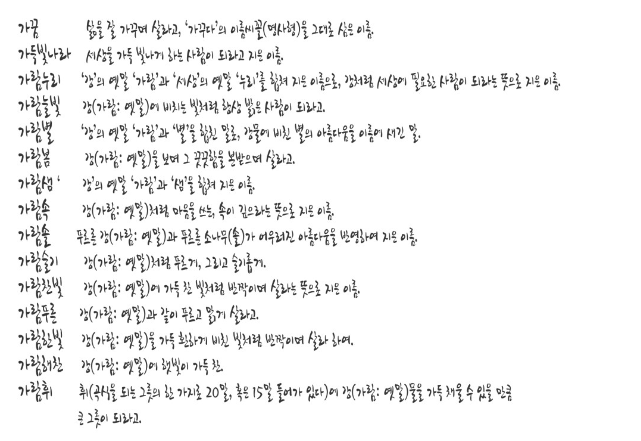 가꿈 삶을 잘 가꾸며 살라고, '가꾸다'의 이름씨꼴(명사형)을 그대로 삼은 이름.
가득빛나라 세상을 가득 빛나게 하는 사람이 되라고 지은 이름.
가람누리 '강'의 옛말 '가람'과 '세상'의 옛말 '누리'를 합쳐 지은 이름으로, 강처럼 세상에 필요한 사람이 되라는 뜻으로 지은 이름.
가람늘빛 강(가람: 옛말)에 비치는 빛처럼 항상 밝은 사람이 되라고.
가람별 '강'의 옛말 '가람'과 '별'을 합친 말로, 강물에 비친 별의 아름다움을 이름에 새긴 말.
가람봄 강(가람: 옛말)을 보며 그 꿋꿋함을 본받으며 살라고.
가람샘 ' 강'의 옛말 '가람'과 '샘'을 합쳐 지은 이름.
가람속 강(가람: 옛말)처럼 마음을 쓰는, 속이 깊으라는 뜻으로 지은 이름.
가람솔 푸르른 강(가람: 옛말)과 푸르른 소나무(솔)가 어우러진 아름다움을 반영하여 지은 이름.
가람슬기 강(가람: 옛말)처럼 푸르게, 그리고 슬기롭게.
가람찬빛 강(가람: 옛말)에 가득 찬 빛처럼 반짝이며 살라는 뜻으로 지은 이름.
가람푸른 강(가람: 옛말)과 같이 푸르고 맑게 살라고.
가람한빛 강(가람: 옛말)을 가득 환하게 비친 빛처럼 반짝이며 살라 하여.
가람해찬 강(가람: 옛말)에 햇빛이 가득 찬.
가람휘 휘(곡식을 되는 그릇의 한 가지로 20말, 혹은 15말 들어가 있다)에 강(가람: 옛말)물을 가득 채울 수 있을 만큼
큰 그릇이 되라고.